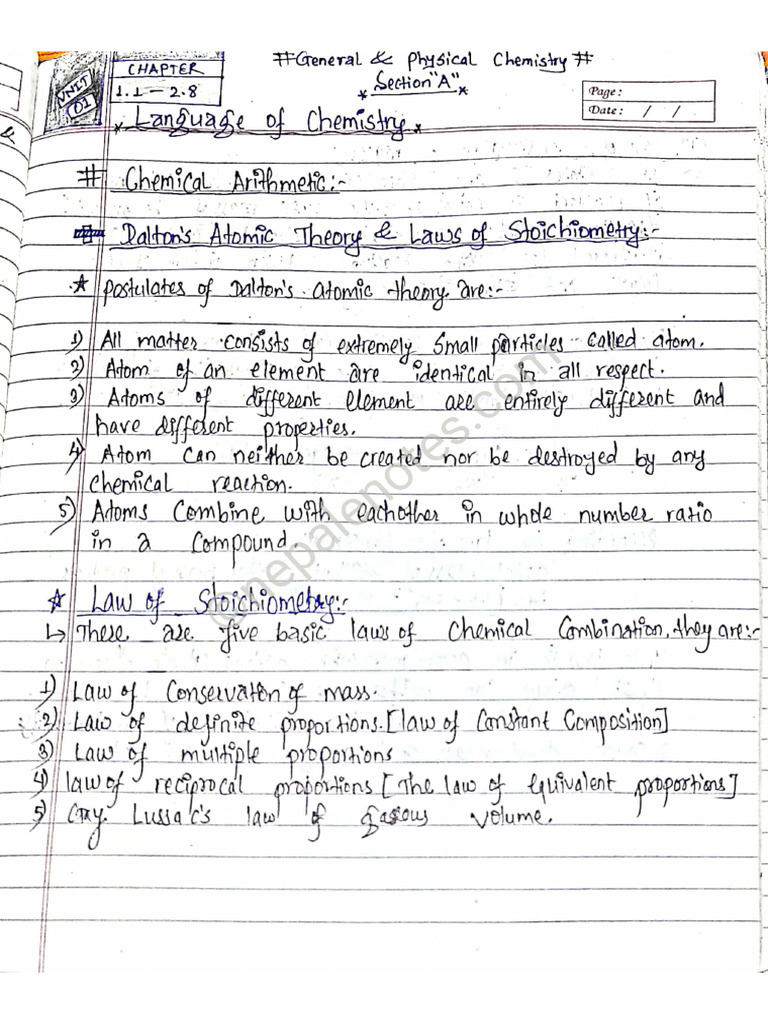 #General & Physical Chemistry#
Section "A"
UNIT 01
CHAPTER
1.1 - 2.8
Page:
Date: / /
Language of Chemistry
&
# Chemical Arithmetic:-
Dalton's Atomic Theory & Laws of Stoichiometry:-
* Postulates of Dalton's atomic theory are:-
1) All matter consists of extremely small particles called atom.
2) Atom of an element are identical in all respect.
3) Atoms of different element are entirely different and
have different properties.
4) Atom can neither be created nor be destroyed by any
chemical reaction.
5) Atoms combine with eachother in whole number ratio
in a compound.
* Law of Stoichiometry:-
↳ There are five basic laws of chemical combination, they are:-
1) Law of Conservation of mass.
2) Law of definite proportions. [law of Constant Composition]
3) Law of multiple proportions
4) law of reciprocal proportions [The law of equivalent proportions]
5) Gay. Lussac's law of gasous volume.
@nepalenotes.com